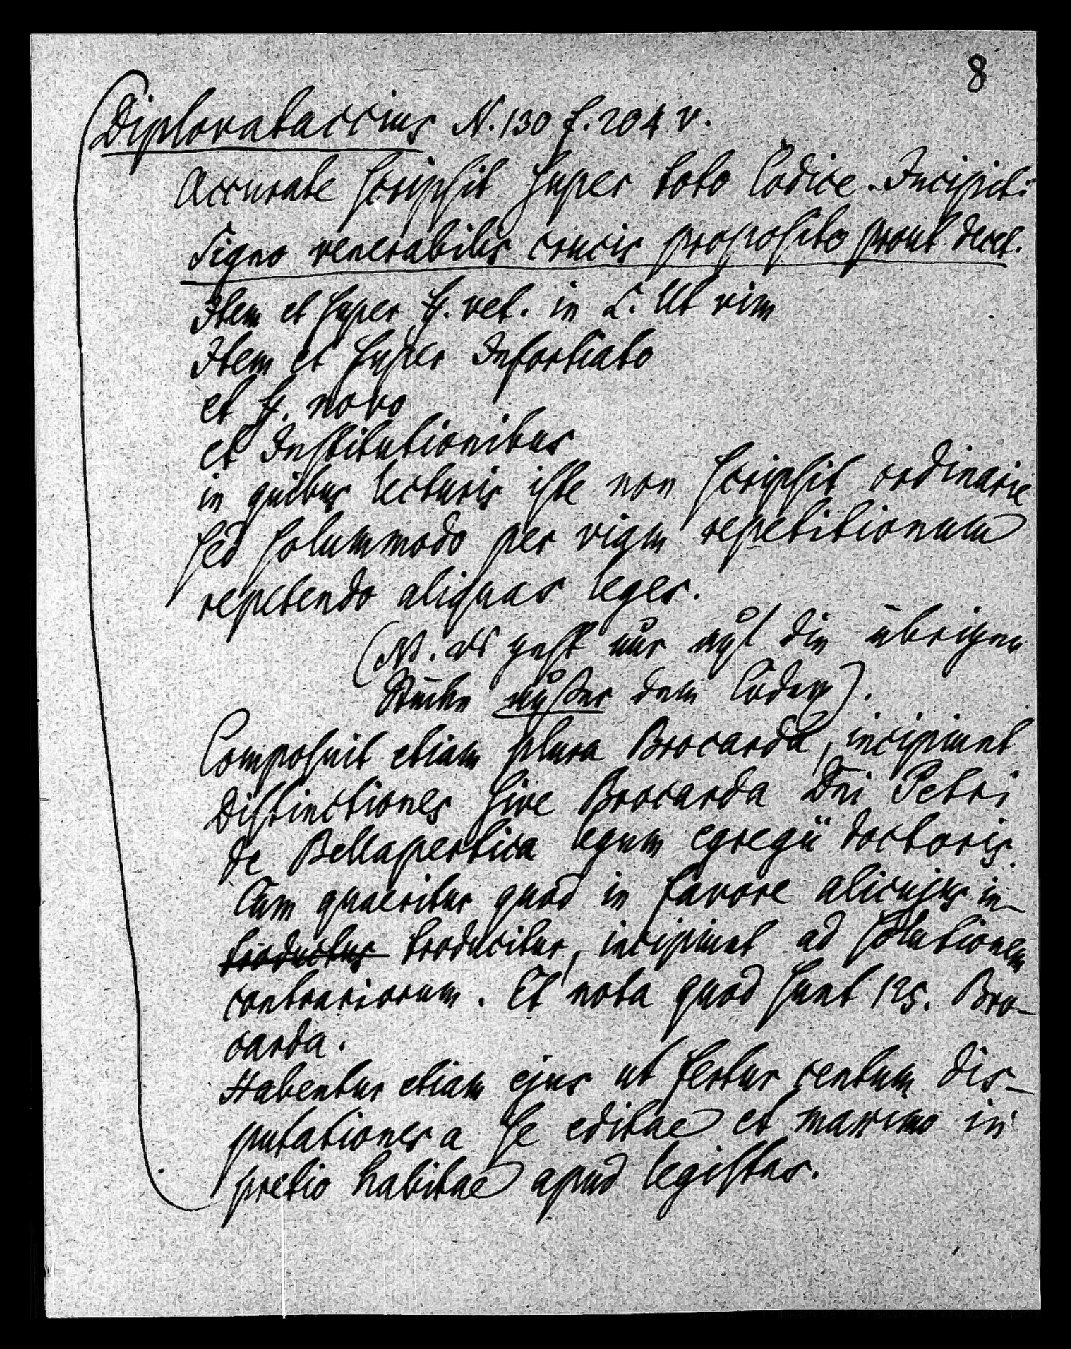 8
Diplovataccius N. 130 f. 204 v.
Accurate scripsit super toto Codice. Incipit:
Signo venerabilis crucis proposito prout decet.
Item et super ff. vet. in L. Ut vim
Item et super Infortiato
et ff. novo
et Institutionibus
in quibus lecturis iste non scripsit ordinarie
sed solummodo per viam repetitionum
repetendo aliquas leges.
(N. das geht nur auf die übrigen
Stücke außer dem Codex).
Composuit etiam plura Brocarda, incipiunt
Distinctiones sive Brocarda Dni Petri
de Bellapertica legum egregii doctoris.
Cum quaeritur quod in favore alicujus in-
troductus troducitur, incipiunt ad solutionem
contrariorum. Et nota quod sunt 125. Bro-
carda.
Habentur etiam ejus ut fertur centum dis-
putationes a se editae et maximo in
pretio habitae apud legistas.